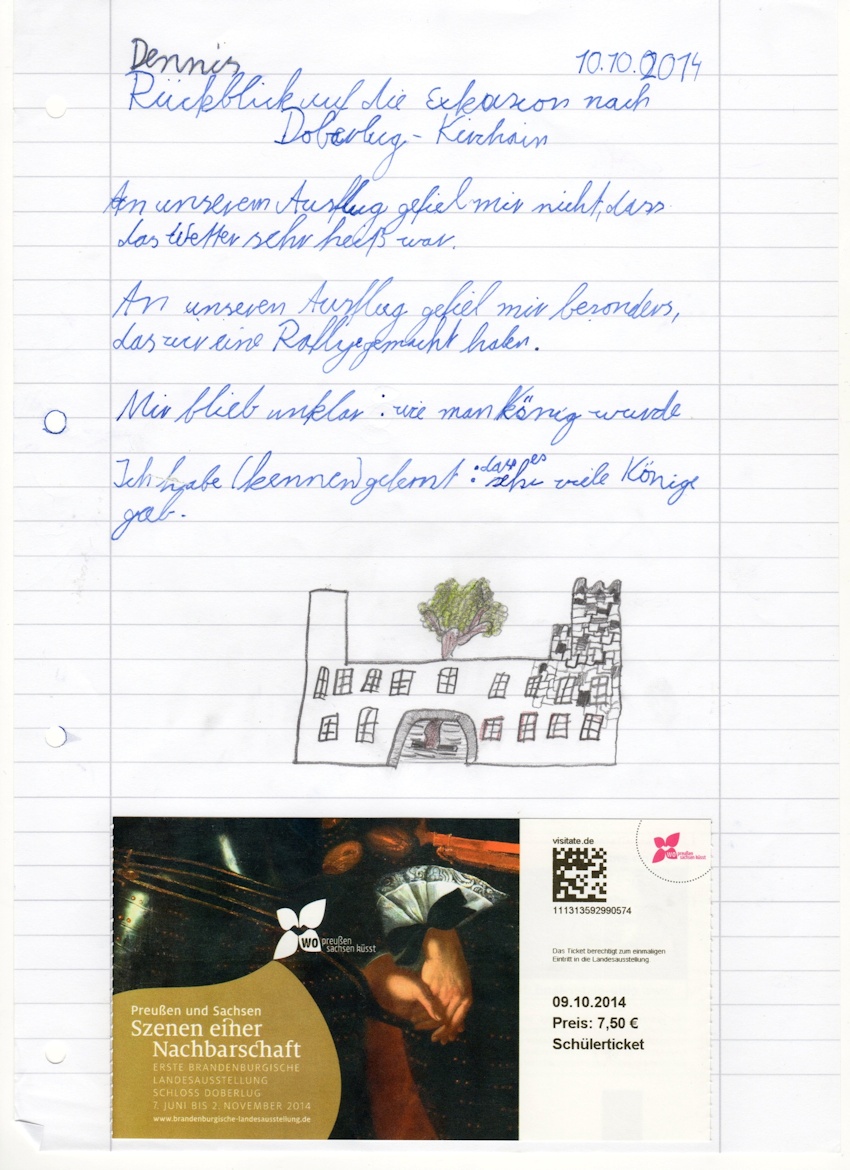 Dennis 10.10.2014
Rückblick auf die Exkursion nach
Doberlug-Kirchhain
An unserem Ausflug gefiel mir nicht, dass
das Wetter sehr heiß war.
An unseren Ausflug gefiel mir besonders,
das wir eine Rallye gemacht haben.
Mir blieb unklar : wie man König wurde
Ich habe (kennen)gelernt : dass es
sehr viele Könige
gab.
wo preußen
sachsen küsst
Preußen und Sachsen
Szenen einer
Nachbarschaft
ERSTE BRANDENBURGISCHE
LANDESAUSSTELLUNG
SCHLOSS DOBERLUG
7. JUNI BIS 2. NOVEMBER 2014
www.brandenburgische-landesausstellung.de
visitate.de
111313592990574
wo preußen
sachsen küsst
Das Ticket berechtigt zum einmaligen
Eintritt in die Landesausstellung.
09.10.2014
Preis: 7,50 €
Schülerticket